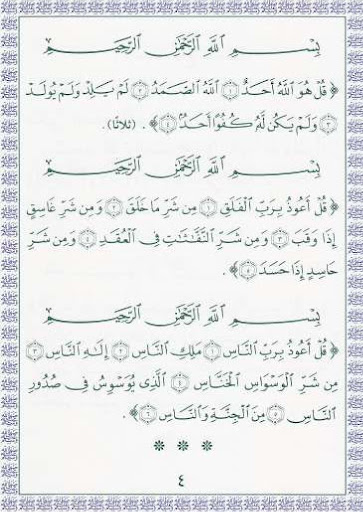 بِسْمِ ٱللَّهِ ٱلرَّحْمَٰنِ ٱلرَّحِيمِ
﴿ قُلْ هُوَ ٱللَّهُ أَحَدٌ ۝١ ٱللَّهُ ٱلصَّمَدُ ۝٢ لَمْ يَلِدْ وَلَمْ يُولَدْ
۝٣ وَلَمْ يَكُن لَّهُ كُفُوًا أَحَدٌ ۝٤ ﴾. (ثلاثا).
بِسْمِ ٱللَّهِ ٱلرَّحْمَٰنِ ٱلرَّحِيمِ
﴿ قُلْ أَعُوذُ بِرَبِّ ٱلْفَلَقِ ۝١ مِن شَرِّ مَا خَلَقَ ۝٢ وَمِن شَرِّ غَاسِقٍ
إِذَا وَقَبَ ۝٣ وَمِن شَرِّ ٱلنَّفَّٰثَٰتِ فِى ٱلْعُقَدِ ۝٤ وَمِن شَرِّ
حَاسِدٍ إِذَا حَسَدَ ۝٥ ﴾.
بِسْمِ ٱللَّهِ ٱلرَّحْمَٰنِ ٱلرَّحِيمِ
﴿ قُلْ أَعُوذُ بِرَبِّ ٱلنَّاسِ ۝١ مَلِكِ ٱلنَّاسِ ۝٢ إِلَٰهِ ٱلنَّاسِ ۝٣
مِن شَرِّ ٱلْوَسْوَاسِ ٱلْخَنَّاسِ ۝٤ ٱلَّذِى يُوَسْوِسُ فِى صُدُورِ
ٱلنَّاسِ ۝٥ مِنَ ٱلْجِنَّةِ وَٱلنَّاسِ ۝٦ ﴾.
* * *
٤